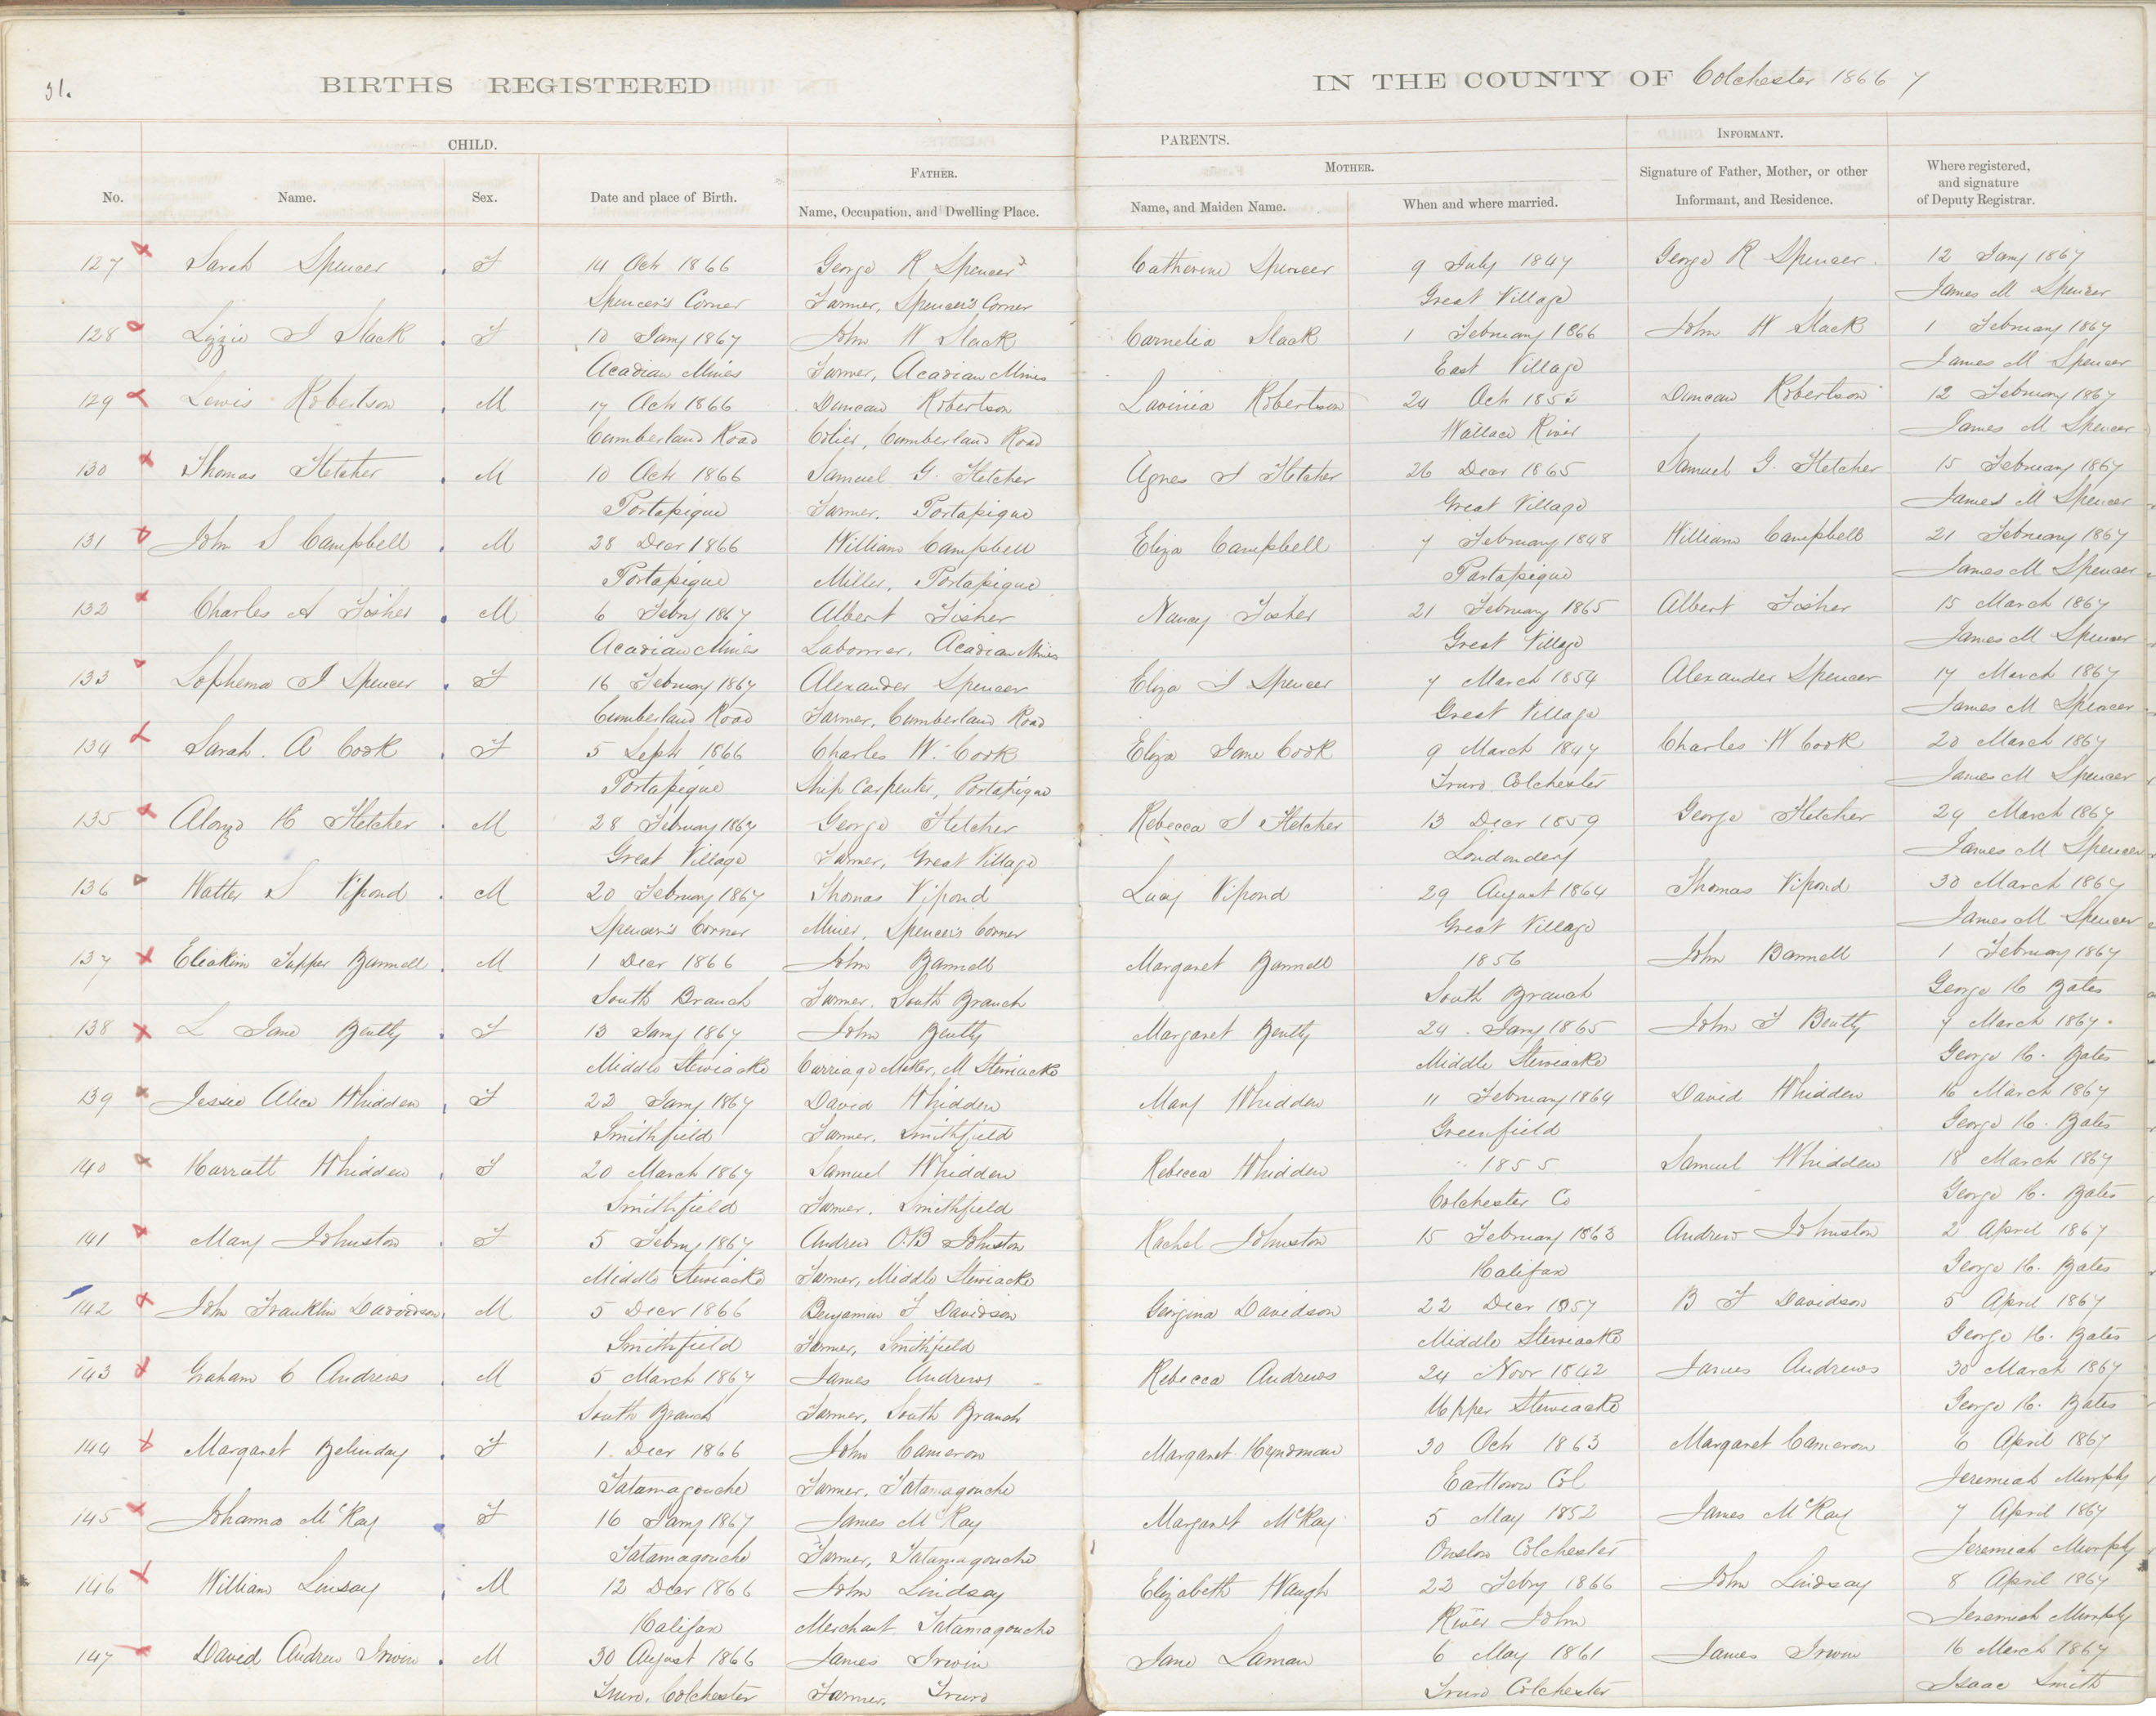 31.
BIRTHS REGISTERED IN THE COUNTY OF Colchester 1866 7
CHILD. PARENTS. INFORMANT.
FATHER. MOTHER.
No. Name. Sex. Date and place of Birth. Name, Occupation, and Dwelling Place. Name, and Maiden Name. When and where married. Signature of Father, Mother, or other Informant, and Residence. Where registered, and signature of Deputy Registrar.
127 Sarah Spencer F 14 Octr 1866 George R Spencer Catherine Spencer 9 July 1847 George R Spencer 12 Jany 1867
Spencer's Corner Farmer, Spencer's Corner Great Village James M Spencer
128 Lizzie J Slack F 10 Jany 1867 John W Slack Carnelia Slack 1 February 1866 John W Slack 1 February 1867
Acadian Mines Farmer, Acadian Mines East Village James M Spencer
129 Lewis Robertson M 17 Octr 1866 Duncan Robertson Lavinia Robertson 24 Octr Duncan Robertson 12 February 1867
Cumberland Road Colier, Cumberland Road Wallace River James M Spencer
130 Thomas Fletcher M 10 Octr 1866 Samuel G. Fletcher Agnes J Fletcher 26 Decr 1865 Samuel G. Fletcher 15 February 1867
Portapique Farmer. Portapique Great Village James M Spencer
131 John S Campbell M 28 Decr 1866 William Campbell Eliza Campbell 7 February 1848 William Campbell 21 February 1867
Portapique Miller, Portapique Portapique James M Spencer
132 Charles A Fisher M 6 Febry 1867 Albert Fisher Nancy Fisher 21 February 1865 Albert Fisher 15 March 1867
Acadian Mines Labourer, Acadian Mines Great Village James M Spencer
133 Sophema J Spencer F 16 February 1867 Alexander Spencer Eliza J Spencer 7 March 1854 Alexander Spencer 17 March 1867
Cumberland Road Farmer, Cumberland Road Great Village James M Spencer
134 Sarah. A Cook F 5 Septr 1866 Charles W. Cook Eliza Jane Cook 9 March 1847 Charles W Cook 20 March 1867
Portapique Ship Carpenter, Portapique Truro Colchester James M Spencer
135 Alonzo H Fletcher M 28 February 1867 George Fletcher Rebecca J Fletcher 13 Decr 1859 George Fletcher 29 March 1867
Great Village Farmer, Great Village Londondery James M Spencer
136 Walter S Vipond M 20 February 1867 Thomas Vipond Lucy Vipond 29 August 1864 Thomas Vipond 30 March 1867
Spencer's Corner Miner, Spencer's Corner Great Village James M Spencer
137 Eliakim Tupper Bannell M 1 Decr 1866 John Bannell Margaret Bannell 1856 John Bannell 1 February 1867
South Branch Farmer. South Branch South Branch George H Bates
138 L Jane Beatty F 13 Jany 1867 John Beatty Margaret Beatty 24 Jany 1865 John F Beatty 7 March 1867
Middle Stewiacke Carriage Maker, M Stewiacke Middle Stewiacke George H. Bates
139 Jessie Alice Whidden F 22 Jany 1867 David Whidden Mary Whidden 11 February 1864 David Whidden 16 March 1867
Smithfield Farmer. Smithfield Greenfield George H. Bates
140 Harriatt Whidden F 20 March 1867 Samuel Whidden Rebecca Whidden 1855 Samuel Whidden 18 March 1867
Smithfield Farmer. Smithfield Colchester Co George H. Bates
141 Mary Johnston F 5 Febry 1867 Andrew O.B Johnston Rachel Johnston 15 February 1863 Andrew Johnston 2 April 1867
Middle Stewiacke Farmer, Middle Stewiacke Halifax George H. Bates
142 John Franklin Davidson M 5 Decr 1866 Benjamin F Davidson Georgina Davidson 22 Decr 1857 B F Davidson 5 April 1867
Smithfield Farmer, Smithfield Middle Stewiacke George H. Bates
143 Graham C Andrews M 5 March 1867 James Andrews Rebecca Andrews 24 Novr 1842 James Andrews 30 March 1867
South Branch Farmer, South Branch Upper Stewiacke George H. Bates
144 Margaret Belinday F 1. Decr 1866 John Cameron Margaret Hyndman 30 Octr 1863 Margaret Cameron 6 April 1867
Tatamagouche Farmer. Tatamagouche Earltown Col Jeremiah Murphy
145 Johanna McKay F 16 Jany 1867 James McKay Margaret McKay 5 May 1852 James McKay 7 April 1867
Tatamagouche Farmer, Tatamagouche Onslow Colchester Jeremiah Murphy
146 William Linsay M 12 Decr 1866 John Lindsay Elizabeth Waugh 22 Febry 1866 John Lindsay 8 April 1867
Halifax Merchant Tatamagouche River John Jeremiah Murphy
147 David Andrew Irwin M 30 August 1866 James Irwin Jane Laman 6 May 1861 James Irwin 16 March 1867
Truro, Colchester Farmer. Truro Truro Colchester Isaac Smith